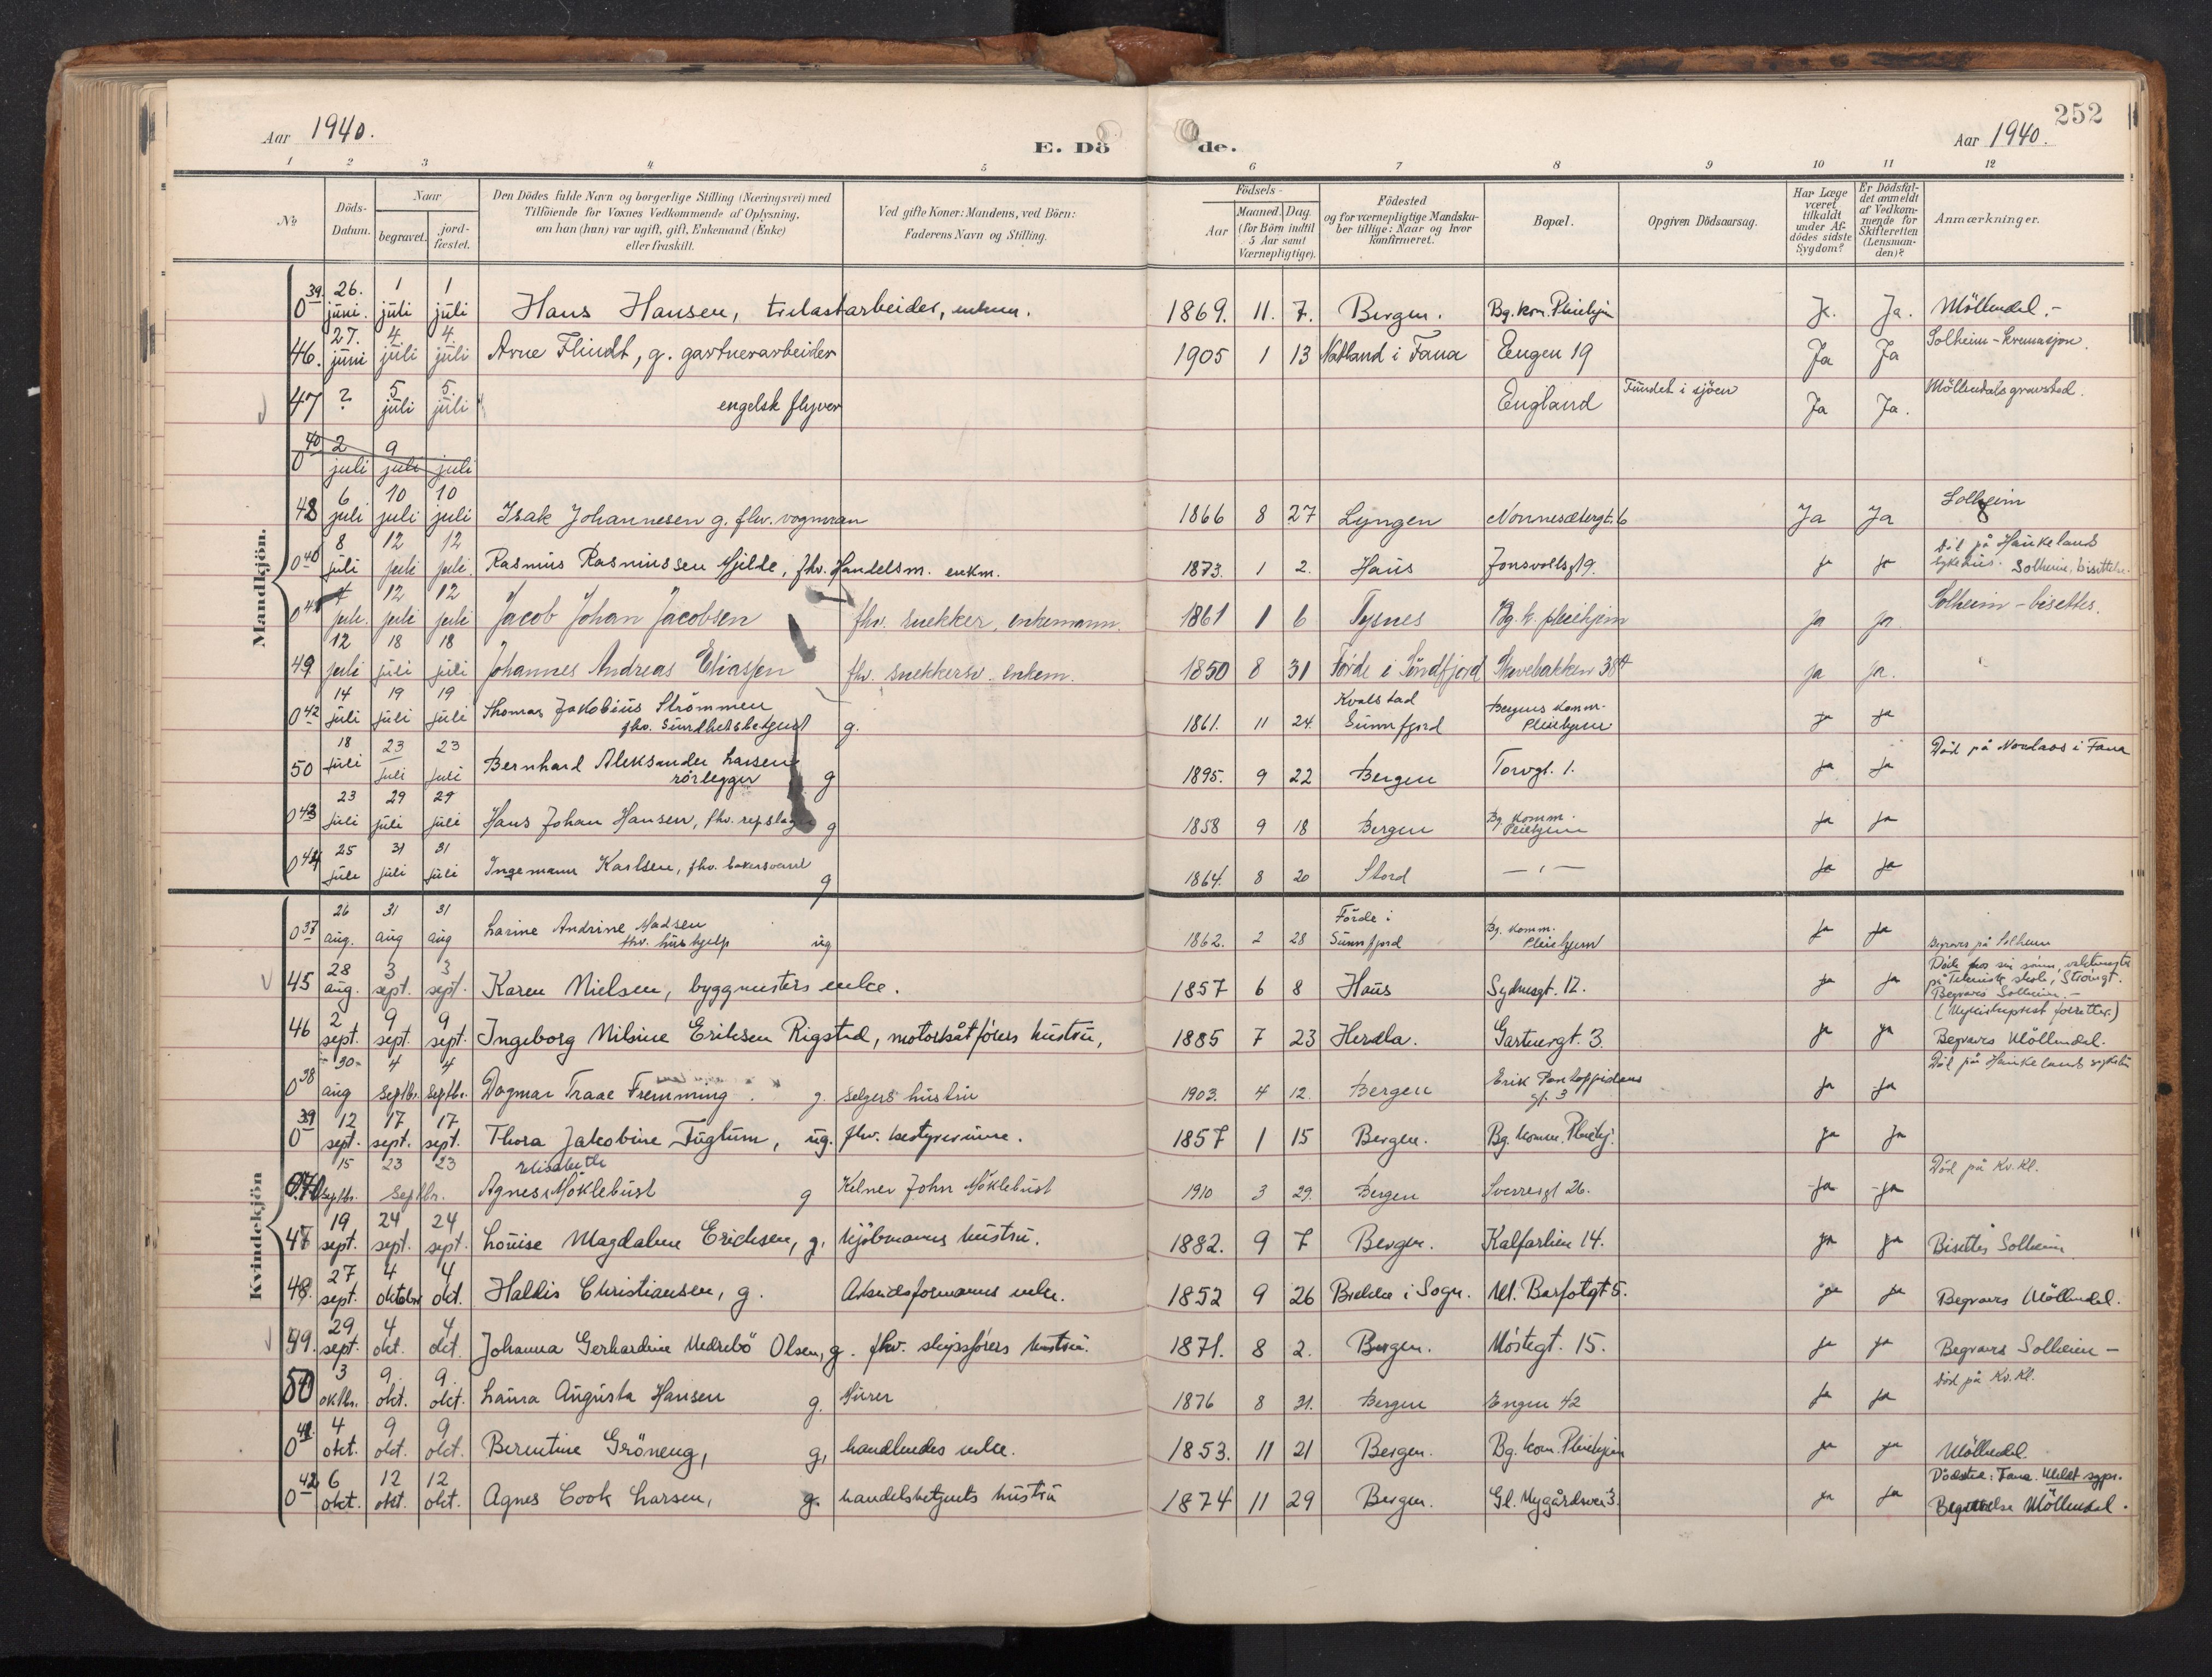 252
Aar 1940.
E. Dö de.
Aar 1940.
1 2 3 4 5 6 7 8 9 10 11 12
No
Döds-Datum.
Naar
begravet.
jord-fæstet.
Den Dödes fulde Navn og borgerlige Stilling (Næringsvei) med
Tilföiende for Voxnes Vedkommende af Oplysning,
om han (hun) var ugift, gift, Enkemand (Enke)
eller fraskilt.
Ved gifte Koner: Mandens, ved Börn:
Faderens Navn og Stilling.
Födsels-
Aar
Maaned. Dag.
(for Börn indtil
5 Aar samt
Værnepligtige).
Födested
og for værnepligtige Mandska-
ber tillige: Naar og hvor
konfirmeret.
Bopæl.
Opgiven Dödsaarsag.
Har Læge
været
tilkaldt
under Af-
dödes sidste
Sygdom?
Er Dödsfal-
det anmeldt
af Vedkom-
mende for
Skifteretten
(Lensman-
den)?
Anmærkninger.
Mandkjön.
0 39. 26. juni. 1 juli 1 juli Hans Hansen, trelastarbeider, enkem. 1869. 11. 7. Bergen. Bg. kom. Pleiehjm Ja. Ja. Möllendal.-
46. 27. juni 4. juli 4. juli Arne Flindt, g. gartnerarbeider 1905 1 13 Natland i Fana Engen 19 Ja Ja Solheim - kremasjon.
47 ? 5. juli 5. juli engelsk flyver England Fundet i sjöen Ja Ja. Möllendals gravsted.
0 40 2 juli 9 juli juli
48 6 juli 10 juli 10 juli Isak Johannesen g. fhv. vognman 1866 8 27 Lyngen Nonnesætergt. 6 Ja Ja Solheim
0 40 8 juli 12 juli 12 juli. Rasmus Rasmussen Mjelde, fhv. Handelsm. enkm. 1873. 1 2. Haus Jonsvollsgt 9. Ja Ja Död på Haukelands sykehus. Solheim, bisettelse.
0 41 juli. 12 juli 12 juli Jacob Johan Jacobsen fhv. snekker, enkemann. 1861 1 6 Tysnes Bg. k. pleiehjem Ja Ja. Solheim - bisettes.
49 12 juli 18 juli 18 juli Johannes Andreas Eliassen fhv. snekkersv. enkem. 1850 8 31 Förde i Söndfjord Skivebakken 38 A Ja Ja.
0 42 14 juli 19 juli 19 juli Thomas Jakobius Strömmen fhv. Sundhetsbetjent g. 1861. 11 24. Kvalstad Sunnfjord Bergens komm. Pleiehjem Ja Ja
50 18 juli 23 juli 23 juli Bernhard Aleksander Larsen rörlegger g 1895. 9 22 Bergen Torvgt. 1. Ja Ja Död på Nordaas i Fana
0 43 23 juli 29 juli 29 juli Hans Johan Hansen, fhv. repslager g 1858 9 18 Bergen Bg. komm. Pleiehjem Ja Ja
0 44 25 juli 31 juli 31 juli Ingemann Karlsen, fhv. bakersvend g 1864. 8 20 Stord — " — Ja Ja
Kvindekjön
0 37 26 aug. 31 aug 31 aug Larine Andrine Madsen fhv. hushjelp ug 1862. 2 28 Förde i Sunnfjord Bg. komm. Pleiehjem Ja Ja Begraves på Solheim
45 28 aug. 3 sept. 3 sept. Karen Nielsen, byggmesters enke. 1857 6 8 Haus Sydnesgt. 12. Ja Ja Döde hos sin sönn, vaktmester på Tekniske skole, Strömgt. Begraves Solheim. -
46 2 sept. 9 sept. 9 sept. Ingeborg Nilsine Eriksen Rigstad, motorbåtförers hustru, 1885 7 23 Herdla. Gartnergt. 3. Ja Ja Begraves Möllendal.
0 38 30 aug 4 septbr. 4 septbr. Dagmar Traae Fremming. g. selgers hustru 1903. 4 12. Bergen Erik Pontoppidans gt. 3 Ja Ja Död på Haukelands sykehus
0 39 12 sept. 17 sept. 17 sept. Thora Jakobine Fuglum, ug. fhv. bestyrerinne. 1857 1 15 Bergen. Bg. komm. Pleiehj. Ja Ja
0 40 15 septbr. 23 septbr. 23 Agnes Elisabeth Möklebust g Kelner John Möklebust 1910 3 29. Bergen Sverresgt 26. Ja Ja Död på Kv. Kl.
47 19 sept. 24 sept. 24 sept. Louise Magdalene Erichsen, g. kjöbmanns hustru. 1882. 9 7 Bergen. Kalfarlien 14. Ja Ja Bisettes Solheim
48. 27 sept. 4 oktober 4 okt. Haldis Christiansen, g. Arbeidsformanns enke. 1852 9 26 Brekke i Sogn. Ul. Barfotgt 5. Ja Ja Begraves Möllendal.
49. 29 sept. 4 okt. 4 okt. Johanna Gerhardine Nedrebö Olsen, g. fhv. skipsförers hustru. 1871. 8 2. Bergen. Möstegt. 15. Ja Ja Begraves Solheim -
50 3 oktbr. 9. okt. 9. okt. Laura Augusta Hansen g. Murer 1876 8 31. Bergen Engen 42 Ja Ja Död på Kv. Kl.
0 41. 4 okt. 9 okt. 9 okt. Berentine Gröneng, g, handlendes enke. 1853. 11 21 Bergen. Bg. kom. Pleiehjem Ja Ja Möllendal.
0 42 6 okt. 12 okt. 12 okt. Agnes Cook Larsen, g. handelsbetjents hustru 1874 11 29 Bergen. Gl. Nygårdsvei 3. Ja Ja Dödssted: Fana. Begravelse Möllendal.